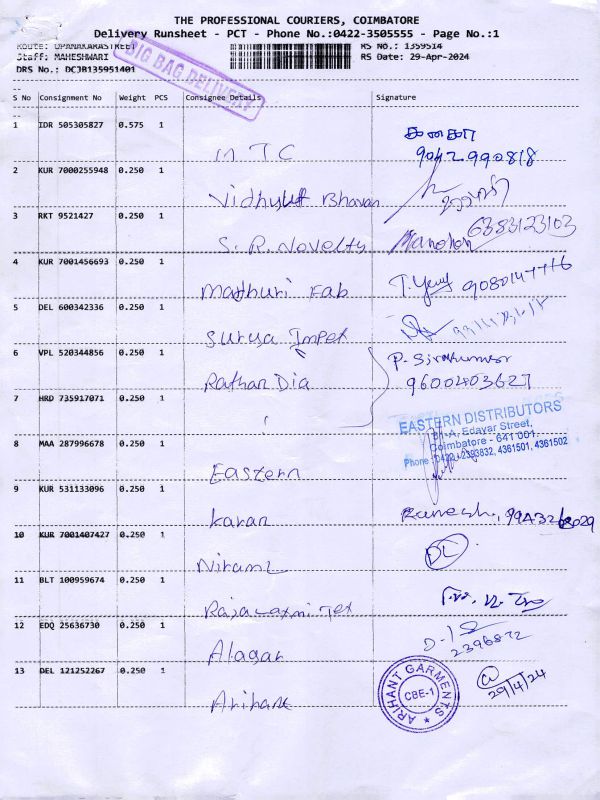 THE PROFESSIONAL COURIERS, COIMBATORE
Delivery Runsheet - PCT - Phone No.:0422-3505555 - Page No.:1
Route: UPANAKARASTREET RS No.: 1359514
Staff: MAHESHWARI RS Date: 29-Apr-2024
DRS No.: DCJB135951401
BIG BAG DELIVERY
S No Consignment No Weight PCS Consignee Details Signature
1 IDR 505305827 0.575 1 MTC கனகா 9042990818
2 KUR 7000255948 0.250 1 Vidhyut Bhavan
3 RKT 9521427 0.250 1 S. R. Novelty Manohar 6383123103
4 KUR 7001456693 0.250 1 Mathuri Fab
5 DEL 600342336 0.250 1 Surya Impex
6 VPL 520344856 0.250 1 Rathan Dia P. Sivakumar 9600403627
7 HRD 735917071 0.250 1
EASTERN DISTRIBUTORS
51-A, Edayar Street,
Coimbatore - 641 001.
Phone : 0422 - 2393832, 4361501, 4361502
8 MAA 287996678 0.250 1 Eastern
9 KUR 531133096 0.250 1 Karan
10 KUR 7001407427 0.250 1 DL
11 BLT 100959674 0.250 1 Rajalaxmi Tex
12 EDQ 25636730 0.250 1 Alagar 2396872
13 DEL 121252267 0.250 1 Arihant 29/4/24
ARIHANT GARMENTS
CBE-1